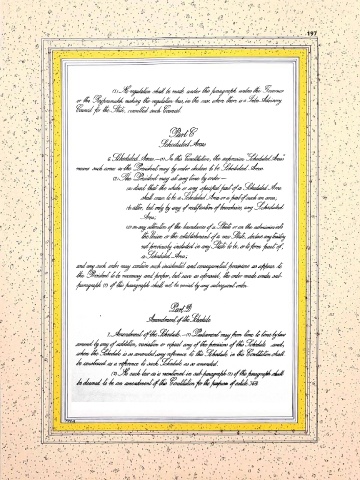 197
(5) No regulation shall be made under this paragraph unless the Governor
or the Rajpramukh making the regulation has, in the case where there is a Tribes Advisory
Council for the State, consulted such Council.
Part C
Scheduled Areas
6. Scheduled Areas.—(1) In this Constitution, the expression "Scheduled Areas"
means such areas as the President may by order declare to be Scheduled Areas.
(2) The President may at any time by order—
(a) direct that the whole or any specified part of a Scheduled Area
shall cease to be a Scheduled Area or a part of such an area;
(b) alter, but only by way of rectification of boundaries, any Scheduled
Area;
(c) on any alteration of the boundaries of a State or on the admission into
the Union or the establishment of a new State, declare any territory
not previously included in any State to be, or to form part of,
a Scheduled Area;
and any such order may contain such incidental and consequential provisions as appear to
the President to be necessary and proper, but save as aforesaid, the order made under sub-
paragraph (1) of this paragraph shall not be varied by any subsequent order.
Part D
Amendment of the Schedule
7. Amendment of the Schedule.—(1) Parliament may from time to time by law
amend by way of addition, variation or repeal any of the provisions of this Schedule and,
when the Schedule is so amended, any reference to this Schedule in this Constitution shall
be construed as a reference to such Schedule as so amended.
(2) No such law as is mentioned in sub-paragraph (1) of this paragraph shall
be deemed to be an amendment of this Constitution for the purposes of article 368.